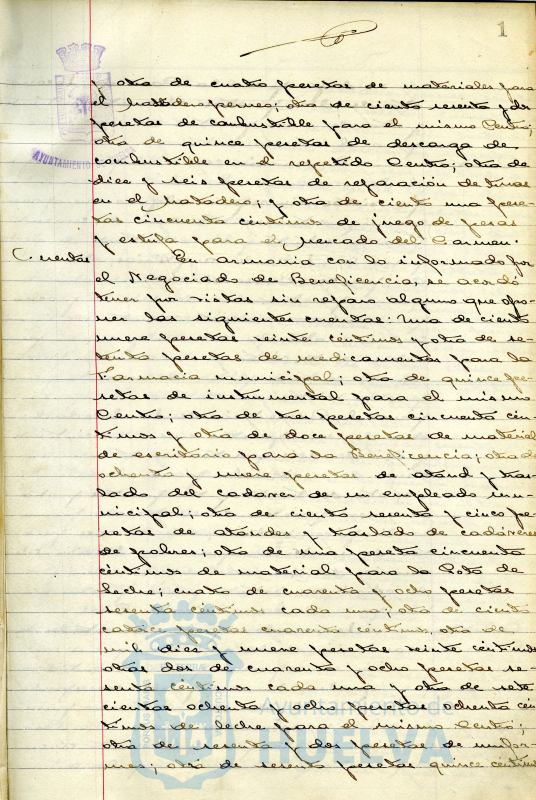 1
y otra de cuatro pesetas de materiales para
el matadero perneo; otra de ciento sesenta y dos
pesetas de combustible para el mismo Centro;
otra de quince pesetas de descarga de
combustible en el repetido Centro; otra de
diez y seis pesetas de reparación de tinas
en el matadero; y otra de ciento una pese-
tas cincuenta céntimos de juego de pesas
y estufa para el Mercado del Carmen.
Cuentas En armonia con lo informado por
el Negociado de Beneficencia, se acordó
tener por vistas sin reparo alguno que opo-
ner las siguientes cuentas: Una de ciento
nueve pesetas veinte céntimos y otra de se-
tenta pesetas de medicamentos para la
Farmacia municipal; otra de quince pe-
setas de instrumental para el mismo
Centro; otra de tres pesetas cincuenta cén-
timos y otra de doce pesetas de material
de escritorio para la Beneficencia; otra de
ochenta y nueve pesetas de ataud y tras-
lado del cadáver de un empleado mu-
nicipal; otra de ciento sesenta y cinco pe-
setas de ataudes y traslado de cadáveres
de pobres; otra de una peseta cincuenta
céntimos de material para la Gota de
Leche; cuatro de cuarenta y ocho pesetas
sesenta céntimos cada una; otra de ciento
catorce pesetas cuarenta céntimos, otra de
mil diez y nueve pesetas veinte céntimos
otras dos de cuarenta y ocho pesetas se-
senta céntimos cada una y otra de sete-
cientas ochenta y ocho pesetas ochenta cén-
timos de leche para el mismo Centro;
otra de sesenta y dos pesetas de unifor-
mes; otra de sesenta pesetas quince céntimos
AYUNTAMIENTO
Ayuntamiento de
HUELVA